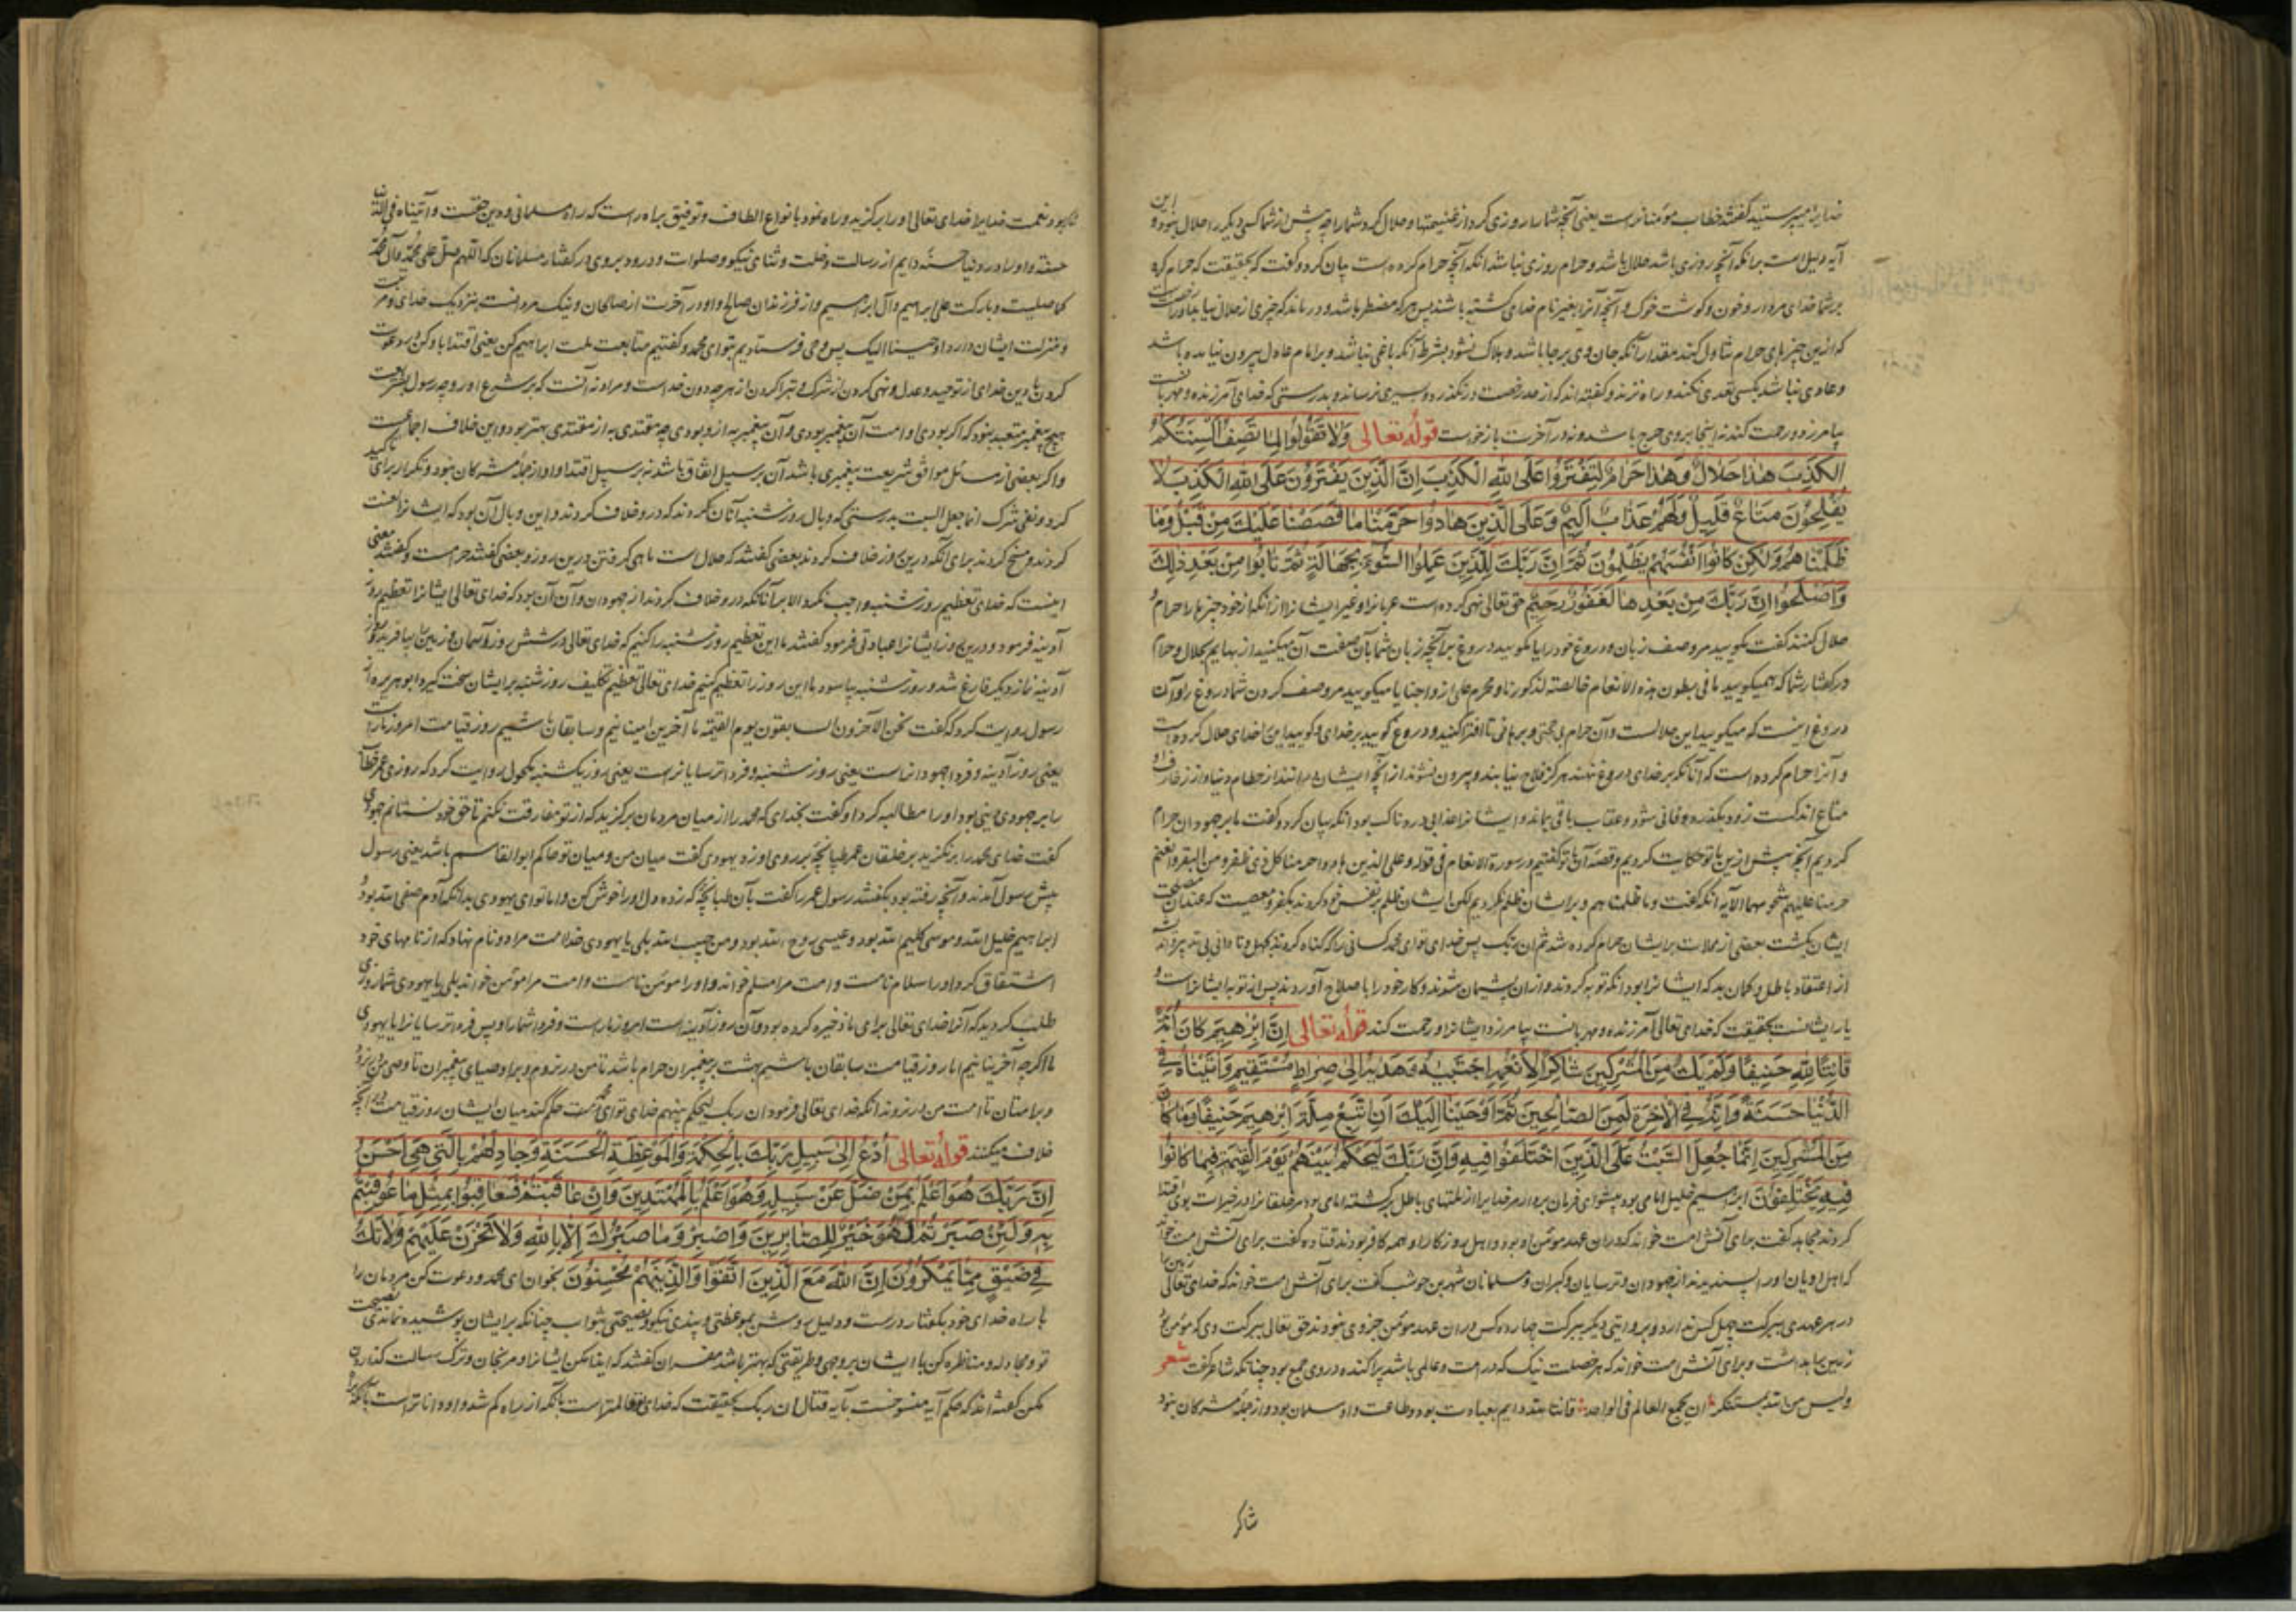 خدایرا میپرستید گفتند خطاب مؤمنانراست یعنی آنچه شما را روزی کرد از غنیمتها و حلال کرد شما را و پیش از شما کسی دیگر را حلال نبود و این
آیه دلیل است برانکه آنچه روزی باشد حلال باشد و حرام روزی نباشد انکه آنچه حرام کرده است بیان کرد و گفت که بحقیقت که حرام کرد
بر شما خدای مردار و خون و گوشت خوک و آنچه آنرا بغیر نام خدای کشته باشند پس هر که مضطر باشد و درماند که چیزی از حلال نیابد او را رخصت است
که ازین چیزهای حرام تناول کند مقدار آنکه جان وی برجا باشد و هلاک نشود بشرط آنکه باغی نباشد و بر امام عادل بیرون نیامده باشد
و عادی نباشد بکسی تعدی نکند و راه نزند و گفته اند که از حد رخصت درنگذرد و بسیری نرساند و بدرستی که خدای آمرزنده و مهربانست
بیامرزد و رحمت کند نه اینجا بر وی حرج باشد و نه در آخرت بازخواست قوله تعالی وَلا تَقُولُوا لِما تَصِفُ اَلْسِنَتُكُمُ
الْكَذِبَ هٰذا حَلالٌ وَهٰذا حَرامٌ لِتَفْتَرُوا عَلَى اللهِ الْكَذِبَ اِنَّ الَّذينَ يَفْتَرُونَ عَلَى اللهِ الْكَذِبَ لا
يُفْلِحُونَ مَتاعٌ قَليلٌ وَلَهُمْ عَذابٌ اَليمٌ وَعَلَى الَّذينَ هادُوا حَرَّمْنا ما قَصَصْنا عَلَيْكَ مِنْ قَبْلُ وَما
ظَلَمْناهُمْ وَلٰكِنْ كانُوا اَنْفُسَهُمْ يَظْلِمُونَ ثُمَّ اِنَّ رَبَّكَ لِلَّذينَ عَمِلُوا السُّوءَ بِجَهالَةٍ ثُمَّ تابُوا مِنْ بَعْدِ ذٰلِكَ
وَاَصْلَحُوا اِنَّ رَبَّكَ مِنْ بَعْدِها لَغَفُورٌ رَحيمٌ حق تعالی نهی کرده است عربانرا و غیر ایشانرا از انکه از خود چیزها را حرام و
حلال کنند گفت مگویید مر وصف زبان و دروغ خود را یا مگویید دروغ بر آنچه زبان شما بآن صفت آن میکنید از بهایم بحلال و حرام
در گفتار شما که همیگویید ما فی بطون هذه الانعام خالصة لذکورنا و محرم علی ازواجنا یا میگویید مر وصف کردن شما دروغ را و آن
دروغ اینست که میگویید این حلالست و آن حرام بی حجتی و برهانی تا افترا کنید و دروغ گویید بر خدای و گویید این خدای حلال کرده است
و آنرا حرام کرده است که آنانکه بر خدای دروغ نهند هرگز فلاح نیابند و پیروز نشوند از آنچه ایشان دارند از حطام دنیا و از زخارف او
متاع اندکست زود بگذرد و فانی شود و عقاب باقی بماند و ایشانرا عذابی دردناک بود انکه بیان کرد و گفت ما بر جهودان حرام
کردیم آنچه پیش ازین با تو حکایت کردیم و قصه آن با تو گفتیم در سورة الانعام فی قوله و علی الذین هادوا حرمنا کل ذی ظفر و من البقر و الغنم
حرمنا علیهم شحومهما الآیه انکه گفت و ما ظلمناهم و بر ایشان ظلم نکردیم لکن ایشان ظلم بر نفس خود کردند بکفر و معصیت که عند آن مصلحت
ایشان بگشت بعضی از محللات بر ایشان حرام کرده شد ثم ان ربک پس خدای تو ای محمد کسانی را که گناه کردند بجهل و نادانی
از اعتقاد باطل و گمان بد که ایشانرا بود انکه توبه کردند و از ان پشیمان شدند و کار خود را با صلاح آوردند پس از توبه ایشانراست
یار ایشانست بحقیقت که خدای تعالی آمرزنده و مهربانست بیامرزد ایشانرا و رحمت کند قوله تعالی اِنَّ اِبْرٰهيمَ كانَ اُمَّةً
قانِتًا لِلّٰهِ حَنيفًا وَلَمْ يَكُ مِنَ الْمُشْرِكينَ شاكِرًا لِاَنْعُمِهِ اجْتَبٰيهُ وَهَدٰيهُ اِلٰى صِراطٍ مُسْتَقيمٍ وَاٰتَيْناهُ فِي
الدُّنْيا حَسَنَةً وَاِنَّهُ فِي الْاٰخِرَةِ لَمِنَ الصّالِحينَ ثُمَّ اَوْحَيْنا اِلَيْكَ اَنِ اتَّبِعْ مِلَّةَ اِبْرٰهيمَ حَنيفًا وَما كانَ
مِنَ الْمُشْرِكينَ اِنَّما جُعِلَ السَّبْتُ عَلَى الَّذينَ اخْتَلَفُوا فيهِ وَاِنَّ رَبَّكَ لَيَحْكُمُ بَيْنَهُمْ يَوْمَ الْقِيٰمَةِ فيما كانُوا
فيهِ يَخْتَلِفُونَ ابراهیم خلیل امامی بود پیشوای فرمان بردار مر خدایرا از ملتهای باطل برگشته امامی بود مر خلقانرا و در خیرات بوی اقتدا
کردند مجاهد گفت برای آتش امت خواند که در ان عهد مؤمن او بود و اهل روزگار او همه کافر بودند قتاده گفت برای آتش امت خواند
که اهل ادیان او را پسندیدند از جهودان و ترسایان و گبران و مسلمانان شهر بن حوشب گفت برای آتش امت خواند که خدای تعالی
در هر عهدی ببرکت چهل کس زمین بدارد و بروایتی دیگر ببرکت چهارده کس در ان عهد مؤمن جز وی نبود خدای تعالی ببرکت وی که مؤمن بود
زمین بداشت و برای آتش امت خواند که هر خصلت نیک که در امت و عالمی باشد پراکنده در وی جمع بود چنانکه شاعر گفت شعر
ولیس من الله بمستنکر ان یجمع العالم فی الواحد قانتا لله دایم بعبادت بود و طاعت و او مسلمان بود و از جمله مشرکان نبود
شاکر
شاکر بود نعمت خدایرا خدای تعالی او را برگزید و راه نمود بانواع الطاف و توفیق براه راست که راه مسلمانی و دین حقست و آتیناه فی الدنیا
حسنة و او را در دنیا حسنه دادیم از رسالت و خلت و ثنای نیکو و صلوات و درود بر وی در گفتار مسلمانان که اللهم صل علی محمد و آل محمد
کما صلیت و بارکت علی ابراهیم و آل ابراهیم و از فرزندان صالح و او در آخرت از صالحان و نیک مردانست بنزدیک خدای و مرتبت
و منزلت ایشان دارد اوحینا الیک پس وحی فرستادیم بتو ای محمد و گفتیم متابعت ملت ابراهیم کن یعنی اقتدا باو کن در دعوت
کردن با دین خدای از توحید و عدل و نهی کردن از شرک و تبرا کردن از هر چه دون خداست و مراد نه آنست که بر شرع او رود چه رسول بشریعت
هیچ پیغمبر متعبد نبود که اگر بودی او امت آن پیغمبر بودی و آن پیغمبر به از و بودی چه مقتدی به از مقتدی بهتر بود و این خلاف اجماعست
و اگر بعضی از مسائل موافق شریعت پیغمبری باشد آن بر سبیل اتفاق باشد نه بر سبیل اقتدا و او از جمله مشرکان نبود و تکرار برای تاکید
کرد و نفی شرک انما جعل السبت بدرستی که وبال روز شنبه آنان کردند که در و خلاف کردند و این وبال آن بود که ایشانرا لعنت
کردند و مسخ کردند برای آنکه درین روز خلاف کردند بعضی گفتند که حلال است ماهی گرفتن درین روز و بعضی گفتند حرامست و گفتند معنی
اینست که خدای تعظیم روز شنبه واجب نکرد الا بر آنانکه در و خلاف کردند از جهودان و آن آن بود که خدای تعالی ایشانرا تعظیم روز
آدینه فرمود و درین روز ایشانرا عبادتی فرمود گفتند ما این تعظیم روز شنبه را کنیم که خدای تعالی در شش روز آسمان و زمین را بیافرید و روز
آدینه نماز دیگر فارغ شد و روز شنبه بیاسود ما این روز را تعظیم کنیم خدای تعالی تعظیم تکلیف روز شنبه بر ایشان سخت کرد ابو هریره از
رسول روایت کرد که گفت نحن الآخرون السابقون یوم القیمة ما آخرین امتانیم و سابقان باشیم روز قیامت امروز ماراست
یعنی روز آدینه و فردا جهودانراست یعنی روز شنبه و فردا ترسایانراست یعنی روز یکشنبه مکحول روایت کرد که روزی عمر خطاب
را بر جهودی دینی بود او را مطالبه کرد او گفت بخدای که محمد را از میان مردمان برگزید که از تو مفارقت نکنم تا حق خود نستانم جهودی
گفت خدای محمد را برنگزید بر خلقان عمر طپانچه بر روی او زد یهودی گفت میان من و میان تو حاکم ابو القاسم باشد یعنی رسول
پیش رسول آمدند و آنچه رفته بود بگفتند رسول عمر را گفت بآن طپانچه که زده دل او را خوش کن و اما تو ای یهودی بدانکه آدم صفی الله بود و
ابراهیم خلیل الله و موسی کلیم الله بود و عیسی روح الله بود و من حبیب الله بلی یا یهودی خدا امت مرا دو نام نهاد که از نامهای خود
اشتقاق کرد او را سلام نامست و امت مرا مسلم خواند و او را مؤمن نامست و امت مرا مؤمن خواند بلی یا یهودی شما روزی
طلب کردید که آنرا خدای تعالی برای ما ذخیره کرده بود و آن روز آدینه است امروز ماراست و فردا شما را و پس فردا ترسایانرا یا یهودی
ما اگر چه آخرینانیم اما روز قیامت سابقان باشیم بهشت بر پیغمبران حرام باشد تا من در نروم و بر اوصیای پیغمبران تا وصی من در نرود
و بر امتان تا امت من در نروند انکه خدای تعالی فرمود ان ربک لیحکم بینهم خدای تو ای محمد حکم کند میان ایشان روز قیامت در آنچه
خلاف میکنند قوله تعالی اُدْعُ اِلٰى سَبيلِ رَبِّكَ بِالْحِكْمَةِ وَالْمَوْعِظَةِ الْحَسَنَةِ وَجادِلْهُمْ بِالَّتي هِيَ اَحْسَنُ
اِنَّ رَبَّكَ هُوَ اَعْلَمُ بِمَنْ ضَلَّ عَنْ سَبيلِهِ وَهُوَ اَعْلَمُ بِالْمُهْتَدينَ وَاِنْ عاقَبْتُمْ فَعاقِبُوا بِمِثْلِ ما عُوقِبْتُمْ
بِهِ وَلَئِنْ صَبَرْتُمْ لَهُوَ خَيْرٌ لِلصّابِرينَ وَاصْبِرْ وَما صَبْرُكَ اِلّا بِاللهِ وَلا تَحْزَنْ عَلَيْهِمْ وَلا تَكُ
في ضَيْقٍ مِمّا يَمْكُرُونَ اِنَّ اللهَ مَعَ الَّذينَ اتَّقَوْا وَالَّذينَ هُمْ مُحْسِنُونَ بخوان ای محمد و دعوت کن مردمان را
با راه خدای خود بگفتار درست و دلیل روشن بموعظتی و پندی نیکو و نصیحتی بثواب چنانکه بر ایشان پوشیده نماند نصیحت
تو و مجادله و مناظره کن با ایشان بر وجهی و طریقتی که بهتر باشد مفسران گفتند که ایذا مکن ایشانرا و مرنجان و ترک رسالت گذاردن
مکن گفته اند که حکم آیه منسوخست بآیه قتال ان ربک بحقیقت که خدای تو عالمتر است بآنکه از راه گم شد و او داناتر است بآنکه